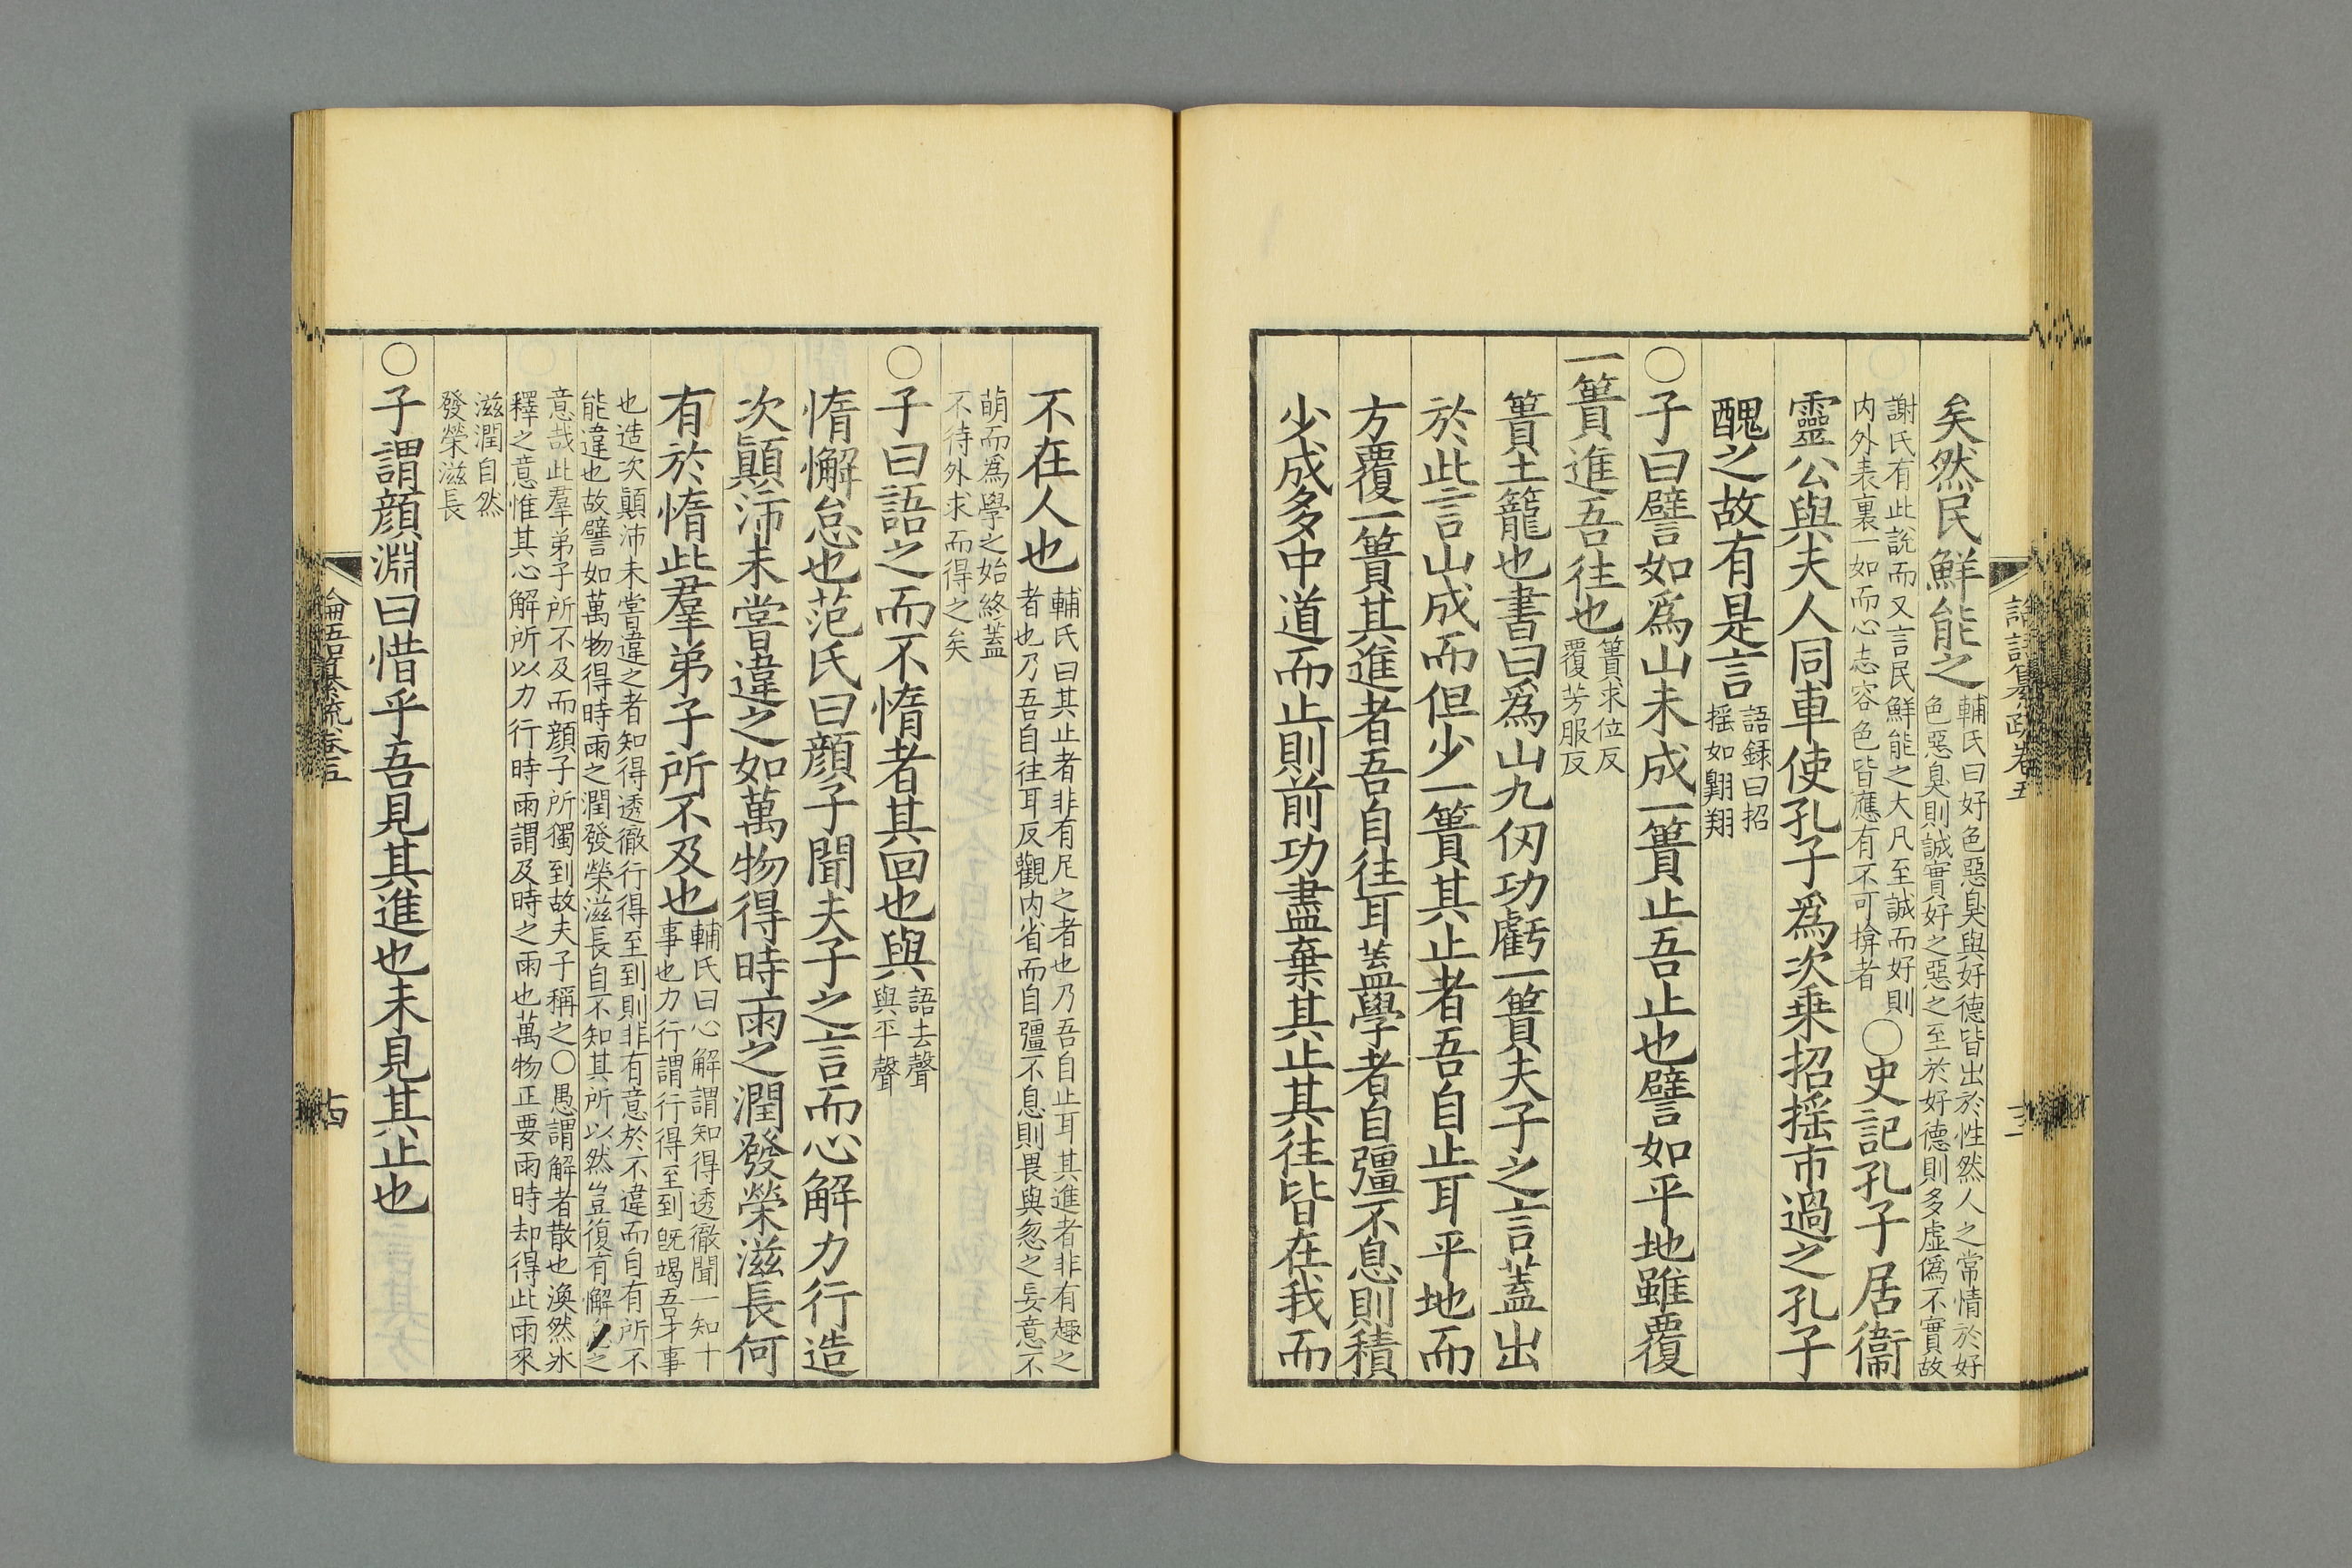 矣然民鮮能之
輔氏曰好色惡臭與好德皆出於性然人之常情於好
色惡臭則誠實好之惡之至於好德則多虛僞不實故
謝氏有此說而又言民鮮能之大凡至誠而好則
内外表裏一如而心志容色皆應有不可揜者
○史記孔子居衞
靈公與夫人同車使孔子爲次乗招摇市過之孔子
醜之故有是言
語録曰招
摇如翺翔
○子曰譬如爲山未成一簣止吾止也譬如平地雖覆
一簣進吾往也
簣求位反
覆芳服反
簣土籠也書曰爲山九仞功虧一簣夫子之言蓋出
於此言山成而但少一簣其止者吾自止耳平地而
方覆一簣其進者吾自往耳蓋學者自彊不息則積
少成多中道而止則前功盡棄其止其往皆在我而
不在人也
輔氏曰其止者非有尼之者也乃吾自止耳其進者非有趣之
者也乃吾自往耳反觀内省而自彊不息則畏與忽之妄意不
萌而爲學之始終蓋
不待外求而得之矣
○子曰語之而不惰者其回也與
語去聲
與平聲
惰懈怠也范氏曰顔子聞夫子之言而心解力行造
次顚沛未嘗違之如萬物得時雨之潤發榮滋長何
有於惰此羣弟子所不及也
輔氏曰心解謂知得透徹聞一知十
事也力行謂行得至到旣竭吾才事
也造次顚沛未嘗違之者知得透徹行得至到則非有意於不違而自有所不
能違也故譬如萬物得時雨之潤發榮滋長自不知其所以然豈復有懈之
意哉此羣弟子所不及而顔子所獨到故夫子稱之○愚謂解者散也渙然冰
釋之意惟其心解所以力行時雨謂及時之雨也萬物正要雨時却得此雨來
滋潤自然
發榮滋長
○子謂顔淵曰惜乎吾見其進也未見其止也
論語纂疏卷五
十四